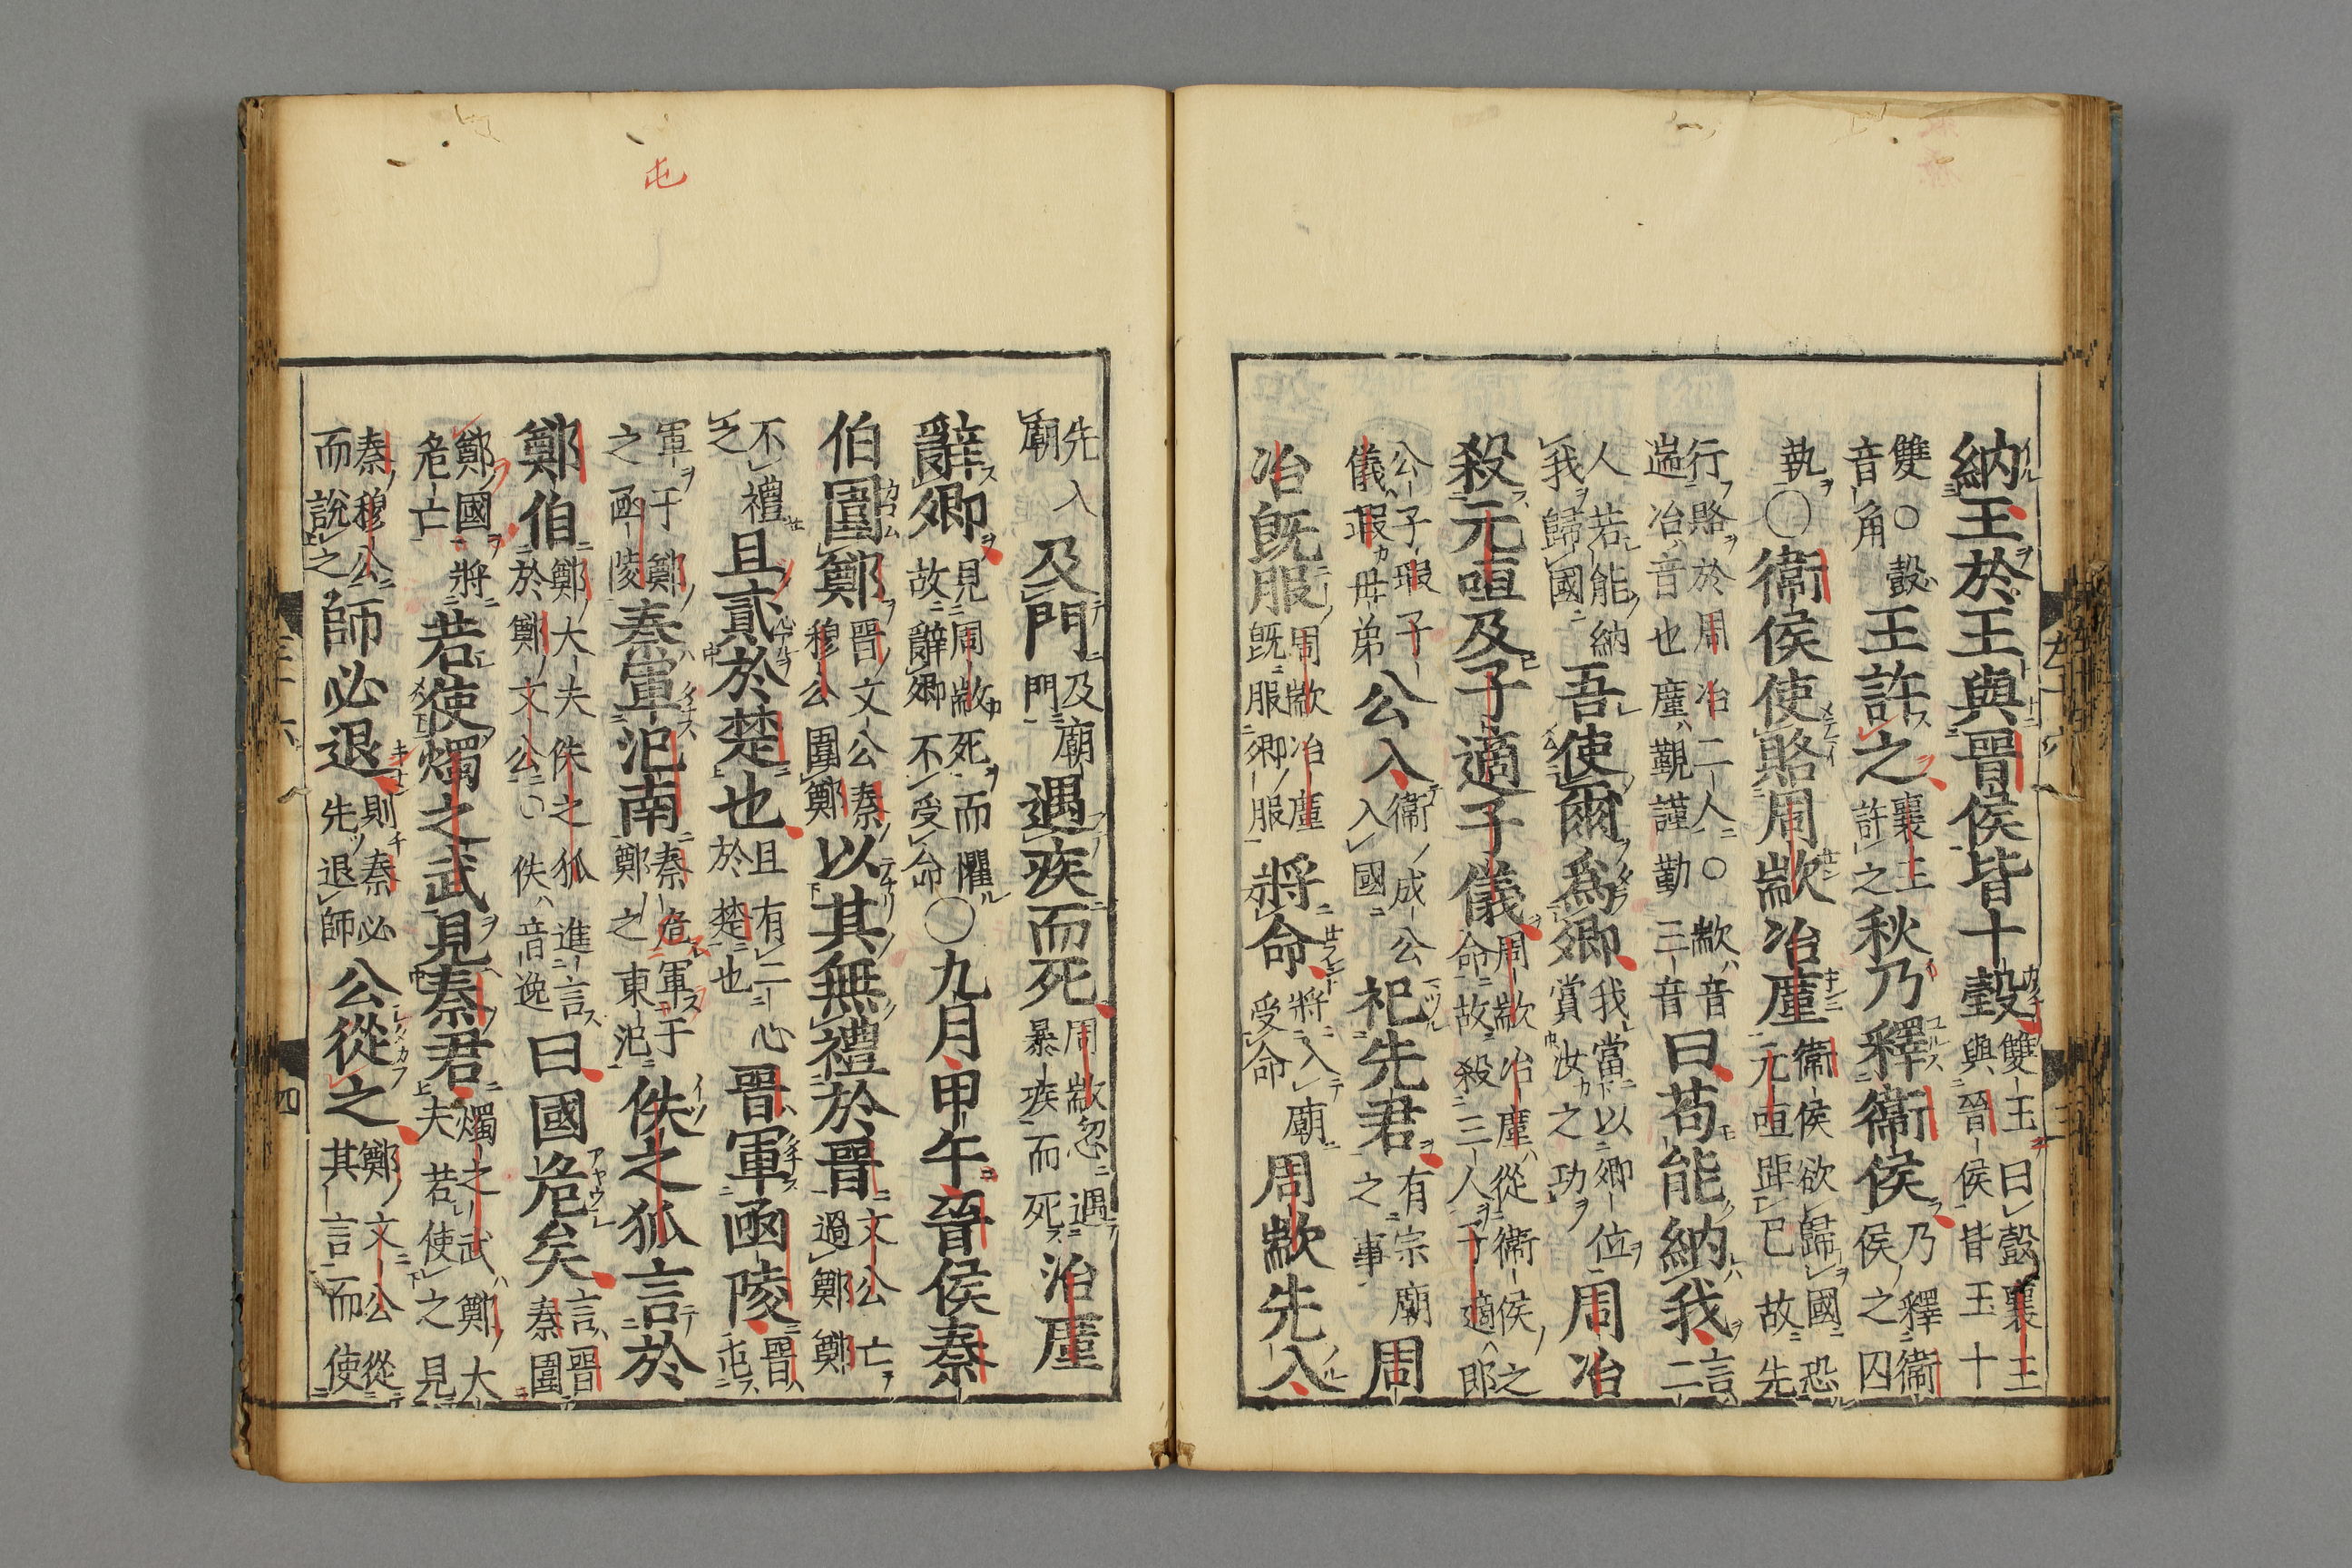 納玉於王與晉侯皆十瑴雙玉曰瑴襄王與晉侯皆玉十
雙○瑴音角王許之襄王許之秋乃釋衛侯乃釋衛侯之囚
執○衛侯使賂周歂冶廑衛侯欲歸國恐元咺距已故先
行賂於周冶二人○歂音遄冶音也廑覲謹勤三音曰苟能納我言二
人若能納我歸國吾使爾爲卿我當以卿位賞汝之功周冶
殺元咺及子適子儀周歂冶廑從衛侯之命故殺三人子適郎
公子瑕子儀瑕母弟公入衛成公入國祀先君有宗廟之事周
冶既服周歂冶廑既服卿服將命將入廟受命周歂先入
屯
先入廟及門及廟門遇疾而死周歂忽遇暴疾而死冶廑
辭卿見周歂死而懼故辭卿不受命○九月甲午晉侯秦
伯圍鄭晉文公秦穆公圍鄭以其無禮於晉文公亡過鄭鄭
不禮之且貳於楚也且有二心於楚也晉軍函陵晉屯
軍于鄭之函陵秦軍氾南秦危軍于鄭之東氾佚之狐言於
鄭伯鄭大夫佚之狐進言於鄭文公○佚音逸曰國危矣言晉秦圍
鄭國將危亡若使燭之武見秦君燭之武鄭大夫若使之見
秦穆公而說之師必退則秦必先退師公從之鄭文公從其言而使
四